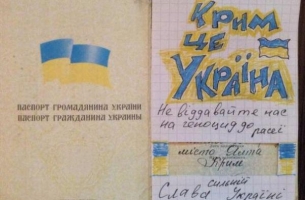 ПАСПОРТ ГРОМАДЯНИНА УКРАЇНИ
ПАСПОРТ ГРАЖДАНИНА УКРАИНЫ
КРИМ
ЦЕ
УКРАЇНА
Не віддавайте нас
на геноцид до расеї
місто Ялта
Крим
сильній
Слава Україні